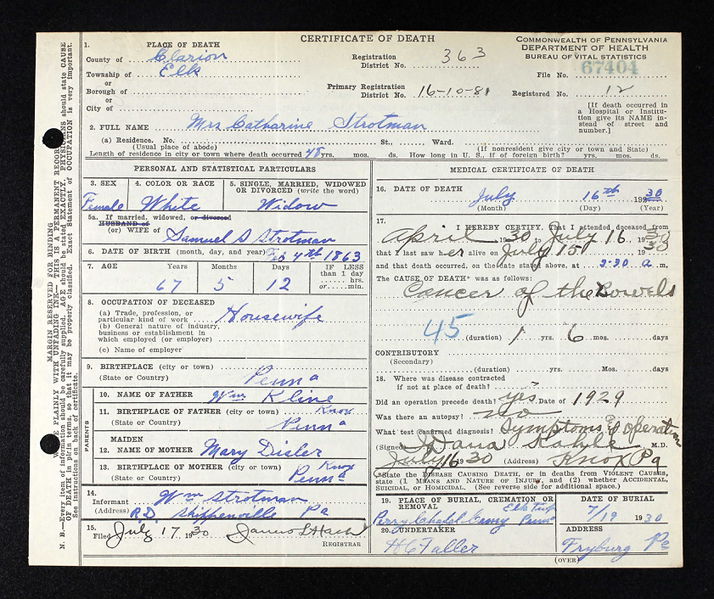 CERTIFICATE OF DEATH
COMMONWEALTH OF PENNSYLVANIA
DEPARTMENT OF HEALTH
BUREAU OF VITAL STATISTICS
1. PLACE OF DEATH
County of Clarion
Township of Elk
or
Borough of
or
City of
Registration District No. 363
Primary Registration District No. 16-10-81
File No. 67404
Registered No. 12
[If death occurred in a Hospital or Institution give its NAME instead of street and number.]
2. FULL NAME Mrs Catharine Strotman
(a) Residence. No. St., Ward.
(Usual place of abode) (If nonresident give city or town and State)
Length of residence in city or town where death occurred 48 yrs. mos. ds. How long in U. S., if of foreign birth? yrs. mos. ds.
PERSONAL AND STATISTICAL PARTICULARS
3. SEX Female
4. COLOR OR RACE White
5. SINGLE, MARRIED, WIDOWED OR DIVORCED (write the word) Widow
5a. If married, widowed, or divorced
HUSBAND of
(or) WIFE of Samuel D Strotman
6. DATE OF BIRTH (month, day, and year) Feb 4th 1863
7. AGE Years Months Days IF LESS than 1 day
67 5 12 hrs. or min.
8. OCCUPATION OF DECEASED
(a) Trade, profession, or particular kind of work Housewife
(b) General nature of industry, business or establishment in which employed (or employer)
(c) Name of employer
9. BIRTHPLACE (city or town)
(State or Country) Penna
PARENTS
10. NAME OF FATHER Wm Kline
11. BIRTHPLACE OF FATHER (city or town) Knox
(State or Country) Penna
MAIDEN
12. NAME OF MOTHER Mary Disler
13. BIRTHPLACE OF MOTHER (city or town) Knox
(State or Country) Penna
14. Informant Wm Strotman
(Address) R.D. Shippenville Pa
15. Filed July 17, 1930
REGISTRAR
MEDICAL CERTIFICATE OF DEATH
16. DATE OF DEATH July 16th 1930
(Month) (Day) (Year)
17. I HEREBY CERTIFY, That I attended deceased from
April 30 to July 16 1930
that I last saw her alive on July 15 1930
and that death occurred, on the date stated above, at 2-30 a m.
The CAUSE OF DEATH* was as follows:
Cancer of the Bowels
45
(duration) 1 yrs. 6 mos. days
CONTRIBUTORY
(Secondary)
(duration) Yrs. Mos. days
18. Where was disease contracted
if not at place of death?
Did an operation precede death? yes Date of 1929
Was there an autopsy? no
What test confirmed diagnosis? Symptoms & operation
(Signed) M.D.
July 16 30 (Address) Knox Pa
*State the DISEASE CAUSING DEATH, or in deaths from VIOLENT CAUSES, state (1) MEANS AND NATURE OF INJURY, and (2) whether ACCIDENTAL, SUICIDAL, or HOMICIDAL. (See reverse side for additional space.)
19. PLACE OF BURIAL, CREMATION OR REMOVAL
Perry Chapel Cemy Elk twp Penna
DATE OF BURIAL
7/19 1930
20. UNDERTAKER
H C Faller
ADDRESS
Fryburg Pa
(OVER)
MARGIN RESERVED FOR BINDING
WRITE PLAINLY WITH UNFADING INK—THIS IS A PERMANENT RECORD
N. B.—Every item of information should be carefully supplied. AGE should be stated EXACTLY. PHYSICIANS should state CAUSE OF DEATH in plain terms, so that it may be properly classified. Exact Statement of OCCUPATION is very important.
See instructions on back of certificate.